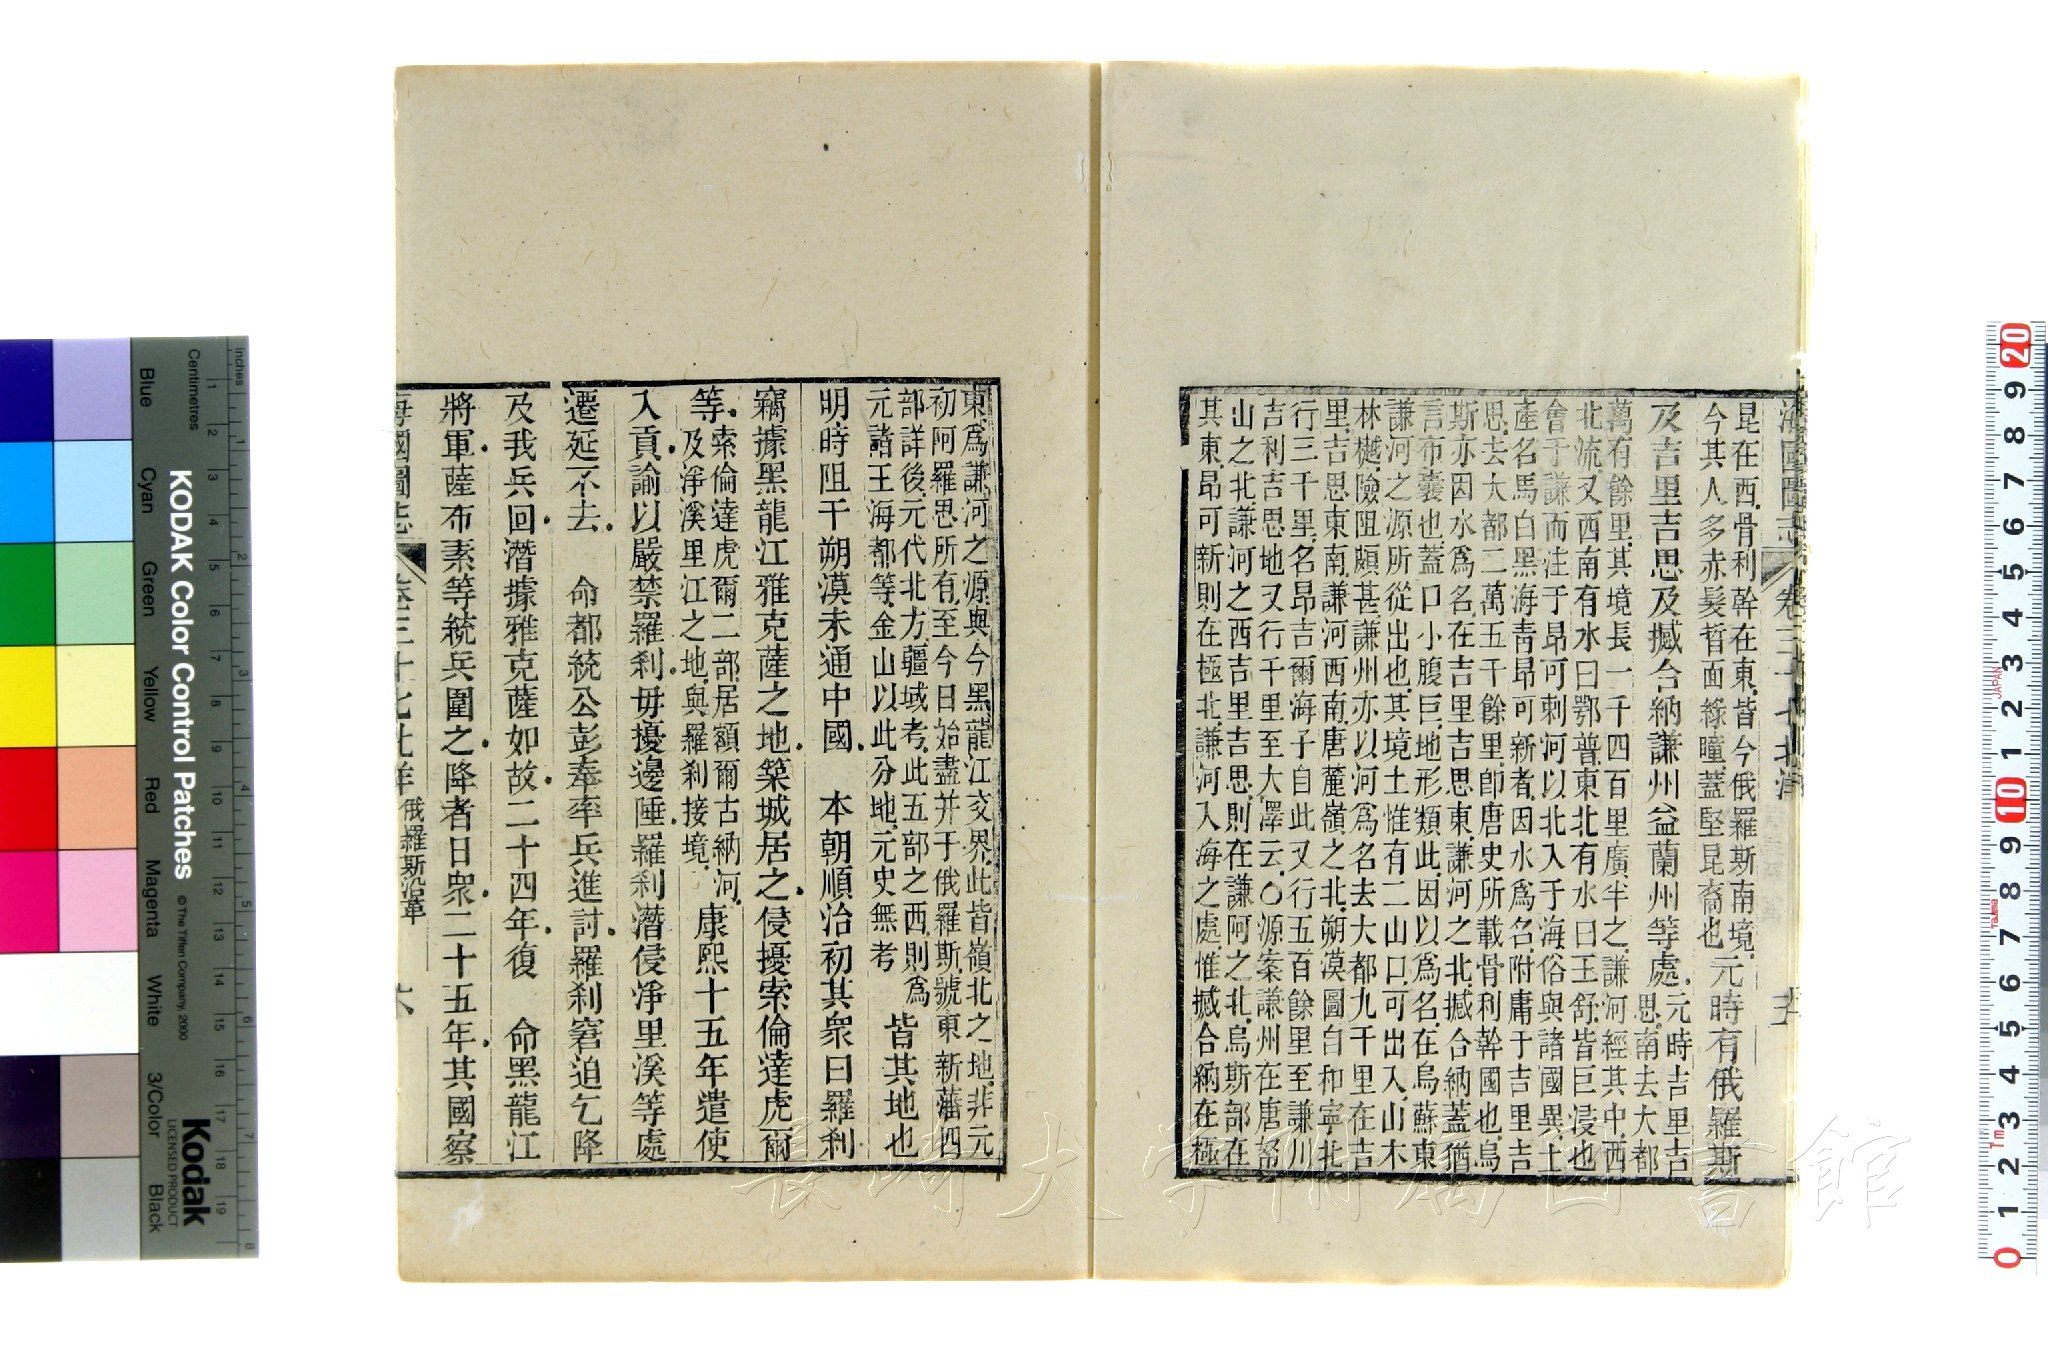 昆在西骨利幹在東皆今俄羅斯南境
今其人多赤髮晳面綠瞳蓋堅昆裔也元時有俄羅斯
及吉里吉思及撼合納謙州益蘭州等處元時吉里吉
思南去大都
萬有餘里其境長一千四百里廣半之謙河經其中西
北流又西南有水曰鄂普東北有水曰玉舒皆巨浸也
會于謙而注于昂可剌河以北入于海俗與諸國異土
產名馬白黑海青昂可新者因水爲名附庸于吉里吉
思去大都二萬五千餘里卽唐史所載骨利幹國也烏
斯亦因水爲名在吉里吉思東謙河之北撼合納蓋猶
言布囊也蓋口小腹巨地形類此因以爲名在烏蘇東
謙河之源所從出也其境土惟有二山口可出入山木
林樾險阻頗甚謙州亦以河爲名去大都九千里在吉
里吉思東南謙河西南唐麓嶺之北朔漠圖自和寧北
行三千里名昂吉爾海子自此又行五百餘里至謙川
吉利吉思地又行千里至大澤云〇源案謙州在唐努
山之北謙河之西吉里吉思則在謙阿之北烏斯部在
其東昂可新則在極北謙河入海之處惟撼合納在極
東爲謙河之源與今黑龍江交界此皆嶺北之地非元
初阿羅思所有至今日始盡并于俄羅斯號東新藩四
部詳後元代北方疆域考此五部之西則爲
元諸王海都等金山以此分地元史無考
皆其地也
明時阻干朔漠未通中國　本朝順治初其衆曰羅刹
竊據黑龍江雅克薩之地築城居之侵擾索倫達虎爾
等索倫達虎爾二部居額爾古納河
及淨溪里江之地與羅刹接境
康熙十五年遣使
入貢諭以嚴禁羅刹毋擾邊陲羅刹潛侵淨里溪等處
遷延不去　命都統公彭春率兵進討羅刹窘迫乞降
及我兵回潛據雅克薩如故二十四年復　命黑龍江
將軍薩布素等統兵圍之降者日衆二十五年其國察
海國圖志　卷三十七北洋　俄羅斯沿革　六
海國圖志　卷三十七　北洋
長崎大学附属図書館
KODAK Color Control Patches
© The Tiffen Company, 2000
Kodak
LICENSED PRODUCT
Inches
Centimetres
Blue
Cyan
Green
Yellow
Red
Magenta
White
3/Color
Black
JAPAN